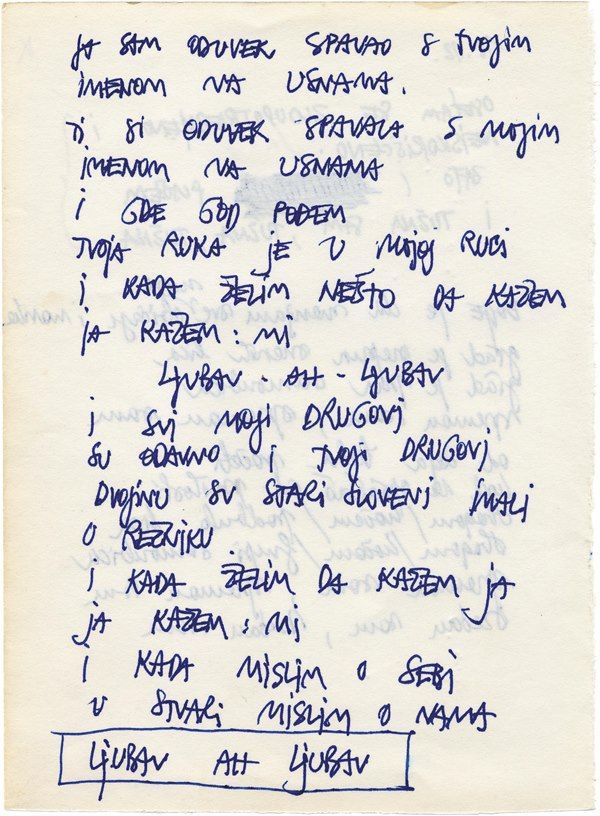 JA SAM ODUVEK SPAVAO S TVOJIM
IMENOM NA USNAMA.
TI SI ODUVEK SPAVALA S MOJIM
IMENOM NA USNAMA
I GDE GOD POĐEM
TVOJA RUKA JE U MOJOJ RUCI
I KADA ŽELIM NEŠTO DA KAŽEM
JA KAŽEM: MI
LJUBAV - AH - LJUBAV
I SVI MOJI DRUGOVI
SU ODAVNO I TVOJI DRUGOVI
DVOJINU SU STARI SLOVENI IMALI
O REZNIKU
I KADA ŽELIM DA KAŽEM JA
JA KAŽEM: MI
I KADA MISLIM O SEBI
U STVARI MISLIM O NAMA
LJUBAV AH LJUBAV